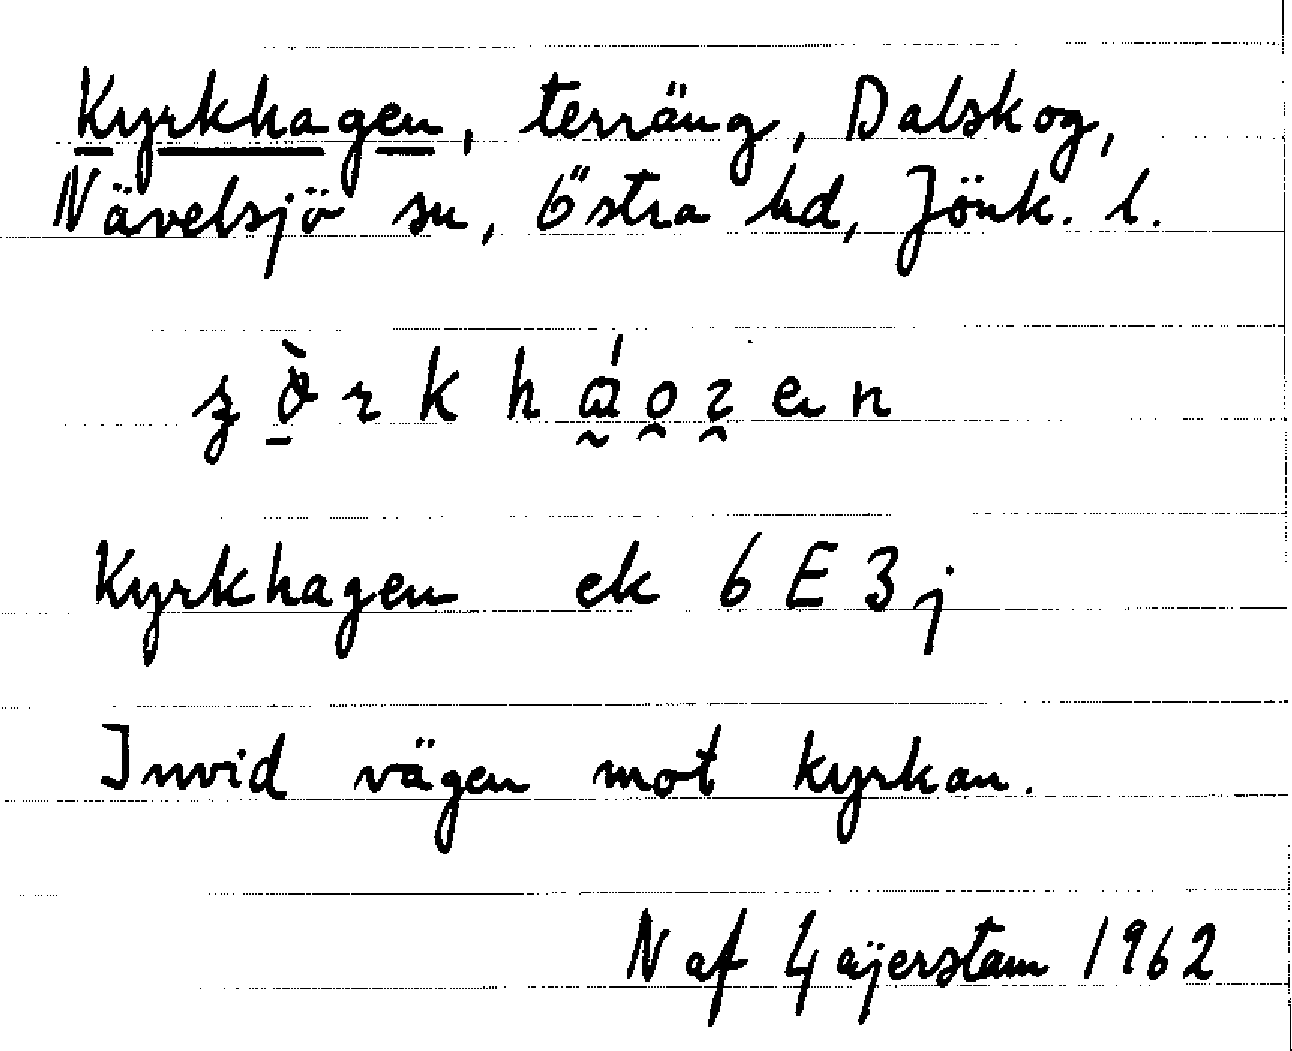 Kyrkhagen, terräng, Dalskog,
Nävelsjö sn, Östra hd, Jönk. l.
Kyrkhagen ek 6 E 3 j
Invid vägen mot kyrkan.
N af Geijerstam 1962